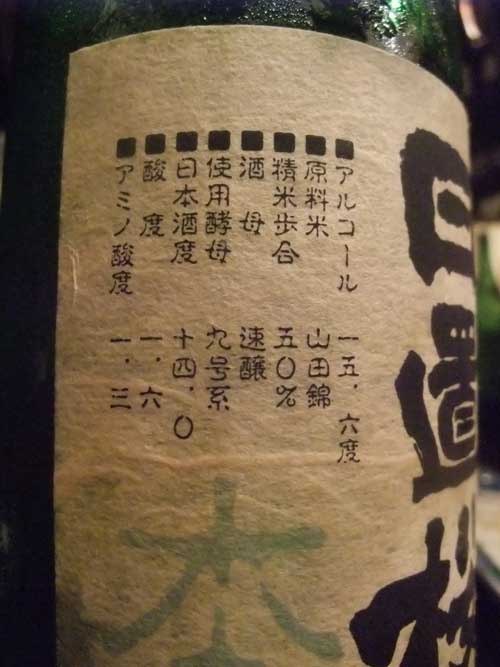 日置桜
■アルコール 一五.六度
■原料米 山田錦
■精米歩合 五〇%
■酒母 速醸
■使用酵母 九号系
■日本酒度 十四.〇
■酸度 一.六
■アミノ酸度 一.三